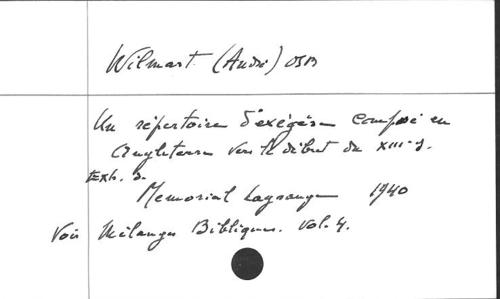 Wilmart (André) OSB
Un répertoire d'exégèse composé en
Angleterre vers le début du XIII s.
Extr. de
Memorial Lagrange 1940
Voir Mélanges Bibliques. vol. 4.